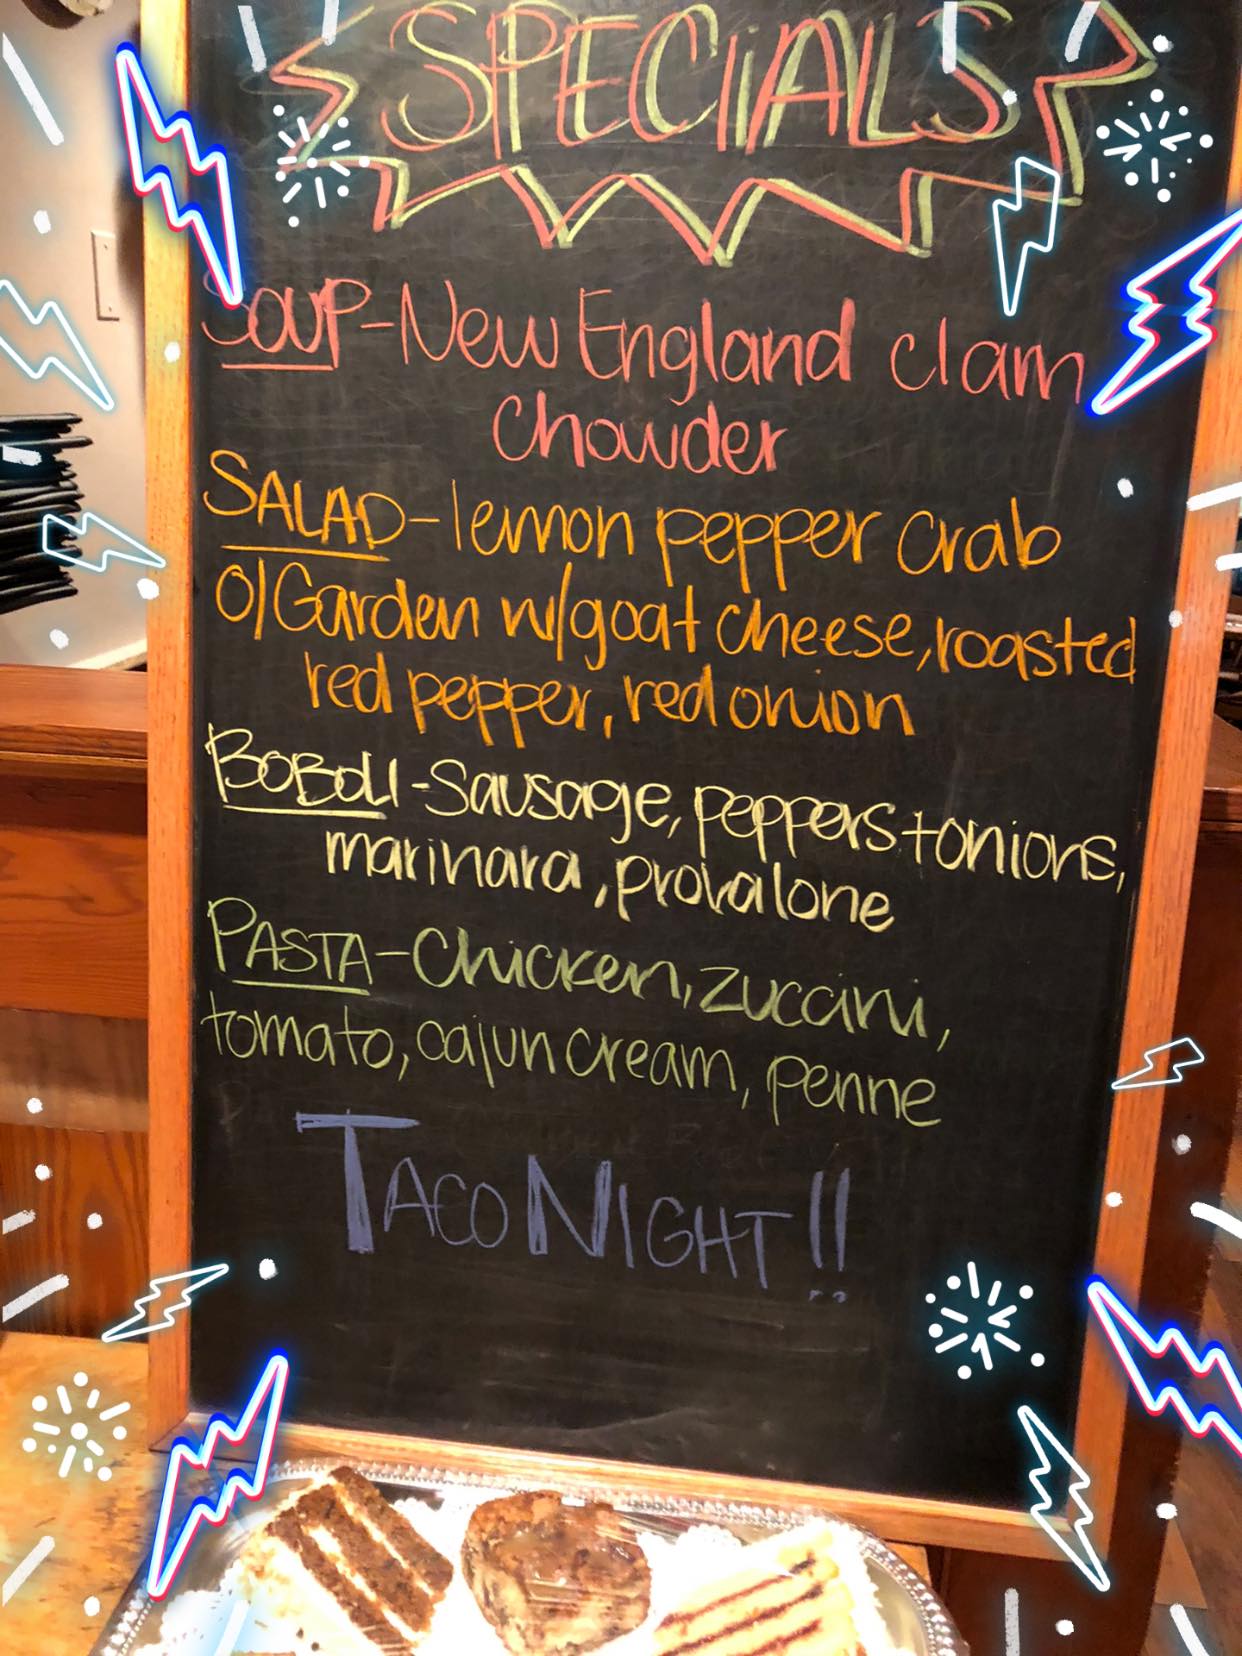 SPECIALS
SOUP-New England clam
chowder
SALAD-lemon pepper crab
o/Garden w/goat cheese, roasted
red pepper, red onion
BOBOLI-Sausage, peppers + onions,
marinara, provalone
PASTA-Chicken, zuccini,
tomato, cajun cream, penne
TACO NIGHT!!